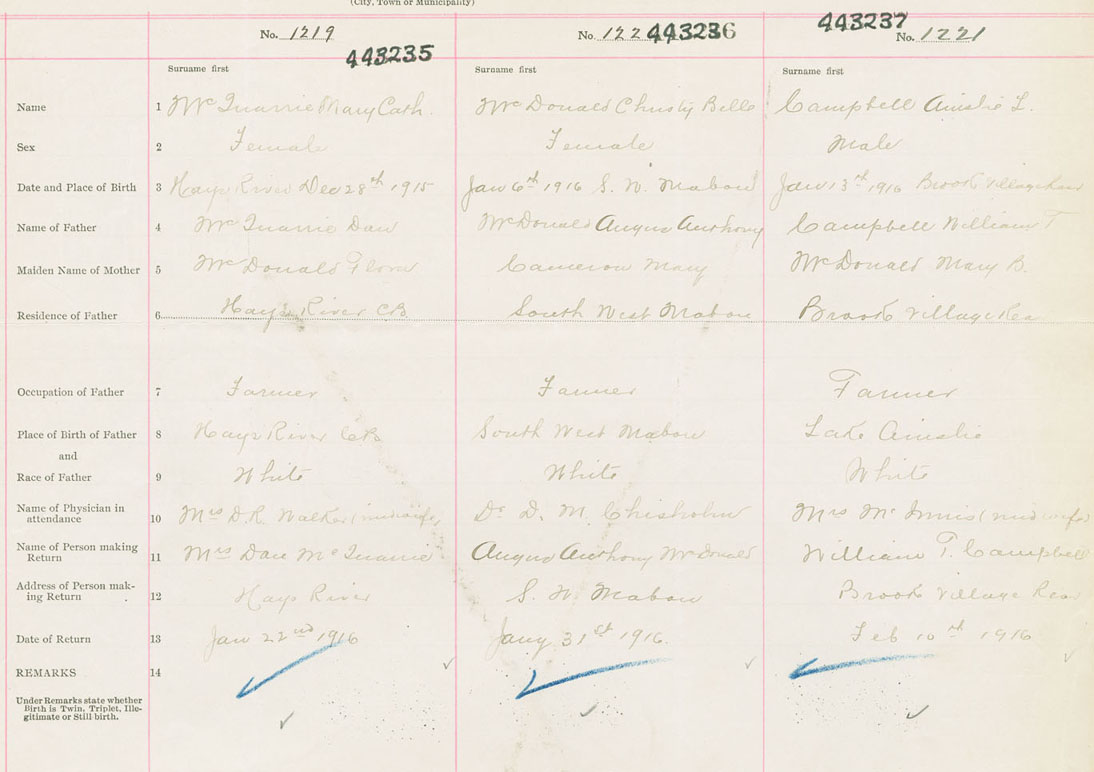 (City, Town or Municipality)
No. 1219 No. 122 443236 No. 1221
443235 443237
Surname first Surname first Surname first
Name 1 McQuarrie Mary Cath. McDonald Christy Belle Campbell Ainslie L.
Sex 2 Female Female Male
Date and Place of Birth 3 Hays River Dec 28th 1915 Jan 6th 1916 S. W. Mabou Jan 13th 1916 Brook Village
Name of Father 4 McQuarrie Dan McDonald Angus Anthony Campbell William T
Maiden Name of Mother 5 McDonald Flora Cameron Mary McDonald Mary B.
Residence of Father 6 Hays River C.B. South West Mabou Brook Village Rear
Occupation of Father 7 Farmer Farmer Farmer
Place of Birth of Father 8 Hays River C.B. South West Mabou Lake Ainslie
and
Race of Father 9 White White White
Name of Physician in
attendance 10 Mrs D.R. Walker (midwife) Dr D. M. Chisholm Mrs McInnis (midwife)
Name of Person making
Return 11 Mrs Dan McQuarrie Angus Anthony McDonald William T. Campbell
Address of Person mak-
ing Return 12 Hays River S. W. Mabou Brook Village Rear
Date of Return 13 Jan 22nd 1916 Jany 31st 1916. Feb 10th 1916
REMARKS 14
Under Remarks state whether
Birth is Twin, Triplet, Ille-
gitimate or Still birth.